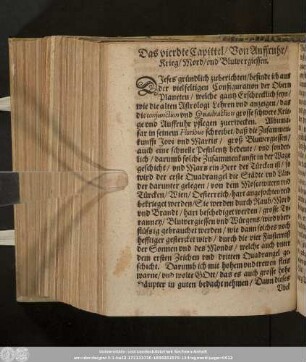 Das vierdte Capittel / Von Auffruhr /
Krieg / Mord / und Blutvergiessen.
Dieses gründlich zuberichten / befinde ich auß
der vielfeltigen Configuration der Obern
Planeten / welche gantz Erschrecklich seyn /
wie die alten Astrologi Lehren und anzeigen / das
die conjunction und Quadratur grosse schwere Krie
ge und Auffruhr pflegen
sar in seinem schreibet / daß die Zusammen
kunfft Jovis und Martis / groß Blutvergiessen /
auch eine schnelle bedeute / und sonder-
lich / darumb solche Zusammenkunfft in der Wag
geschicht / und Mars ein Herr der Türcken ist /
wird der erste Quadrangel die Städte und Län-
der darunter gelegen / von dem Moscowiter und
Türcken / Wien / Osterreich hart angefochten und
bekrieget werden / Sie werden durch Raub / Mord
und Brandt / hart beschediget werden / grosse Ty-
ranney / Blutvergiessen und Würgens / wird uber-
flüssig gebrauchet werden / wie dann solches noch
hefftiger gestercket wird / durch die vier Finsternis
der Sonnen und des Monds / welche auch unter
dem ersten Zeichen und dritten Quadrangel ge-
schicht. Darumb ich mit hohen und trewen fleis
warne / und wolte Gott / das es auch grosse hohe
Häupter in guten bedacht nehmen / Dann dieses
Ubel